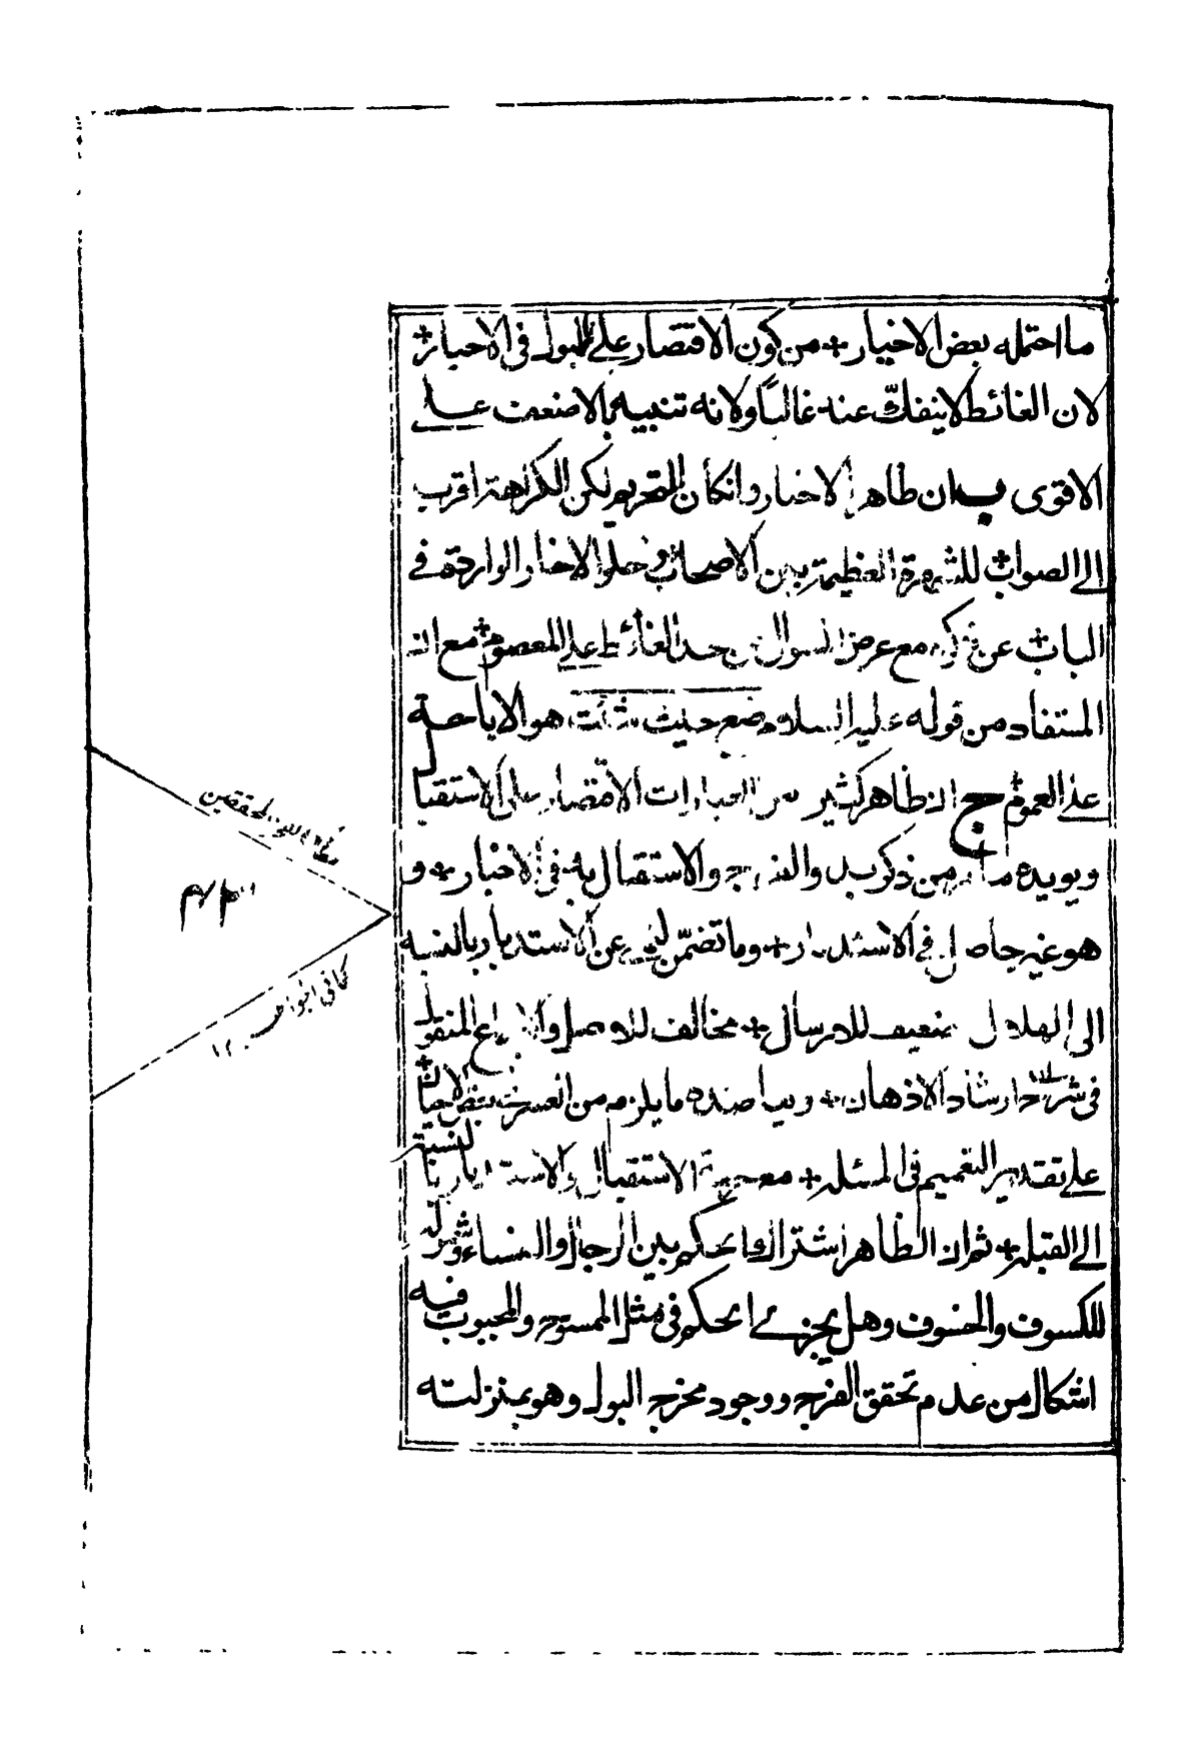 ما احتمله بعض الاخيار + من كون الاقتصار على البول في الاخبار +
لان الغائط لا ينفكّ عنه غالبًا ولانه تنبيه بالاضعف على
الاقوى ب ان ظاهر الاخبار وانكان للتحريم لكن الكراهة اقرب
الى الصواب + للشهرة العظيمة بين الاصحاب وخلو الاخبار الواردة في
الباب + عن ذكره مع عرض السوال عن حد الغائط على المعصوم + مع ان
المستفاد من قوله عليه السلام ضع حيث شئت هو الاباحة
على العموم + ج ان ظاهر كثير من العبارات الاقتصار على الاستقبال
ويويده ما مر من ذكر والفرج والاستقبال به في الاخبار + و
هو غير حاصل في الاستدبار + وما تضمّن النهي عن الاستدبار بالنسبه
الى الهلال ضعيف للارسال + مخالف للاصل والاجماع المنقول
في شرح ارشاد الاذهان + ما يلزمه من العسر في بعض الاحيان +
على تقدير التعميم في المسئلة + مع الاستقبال والاستدبار بالنسبة
الى القبلة + ثم ان الظاهر اشتراك الحكم بين الرجال والنساء
للكسوف والخسوف وهل يجزي الحكم في مثل الممسوح والمجبوب فيه
اشكال من عدم تحقق الفرج ووجود مخرج البول وهو بمنزلته
المحققين
كما في الجواهر ١٢